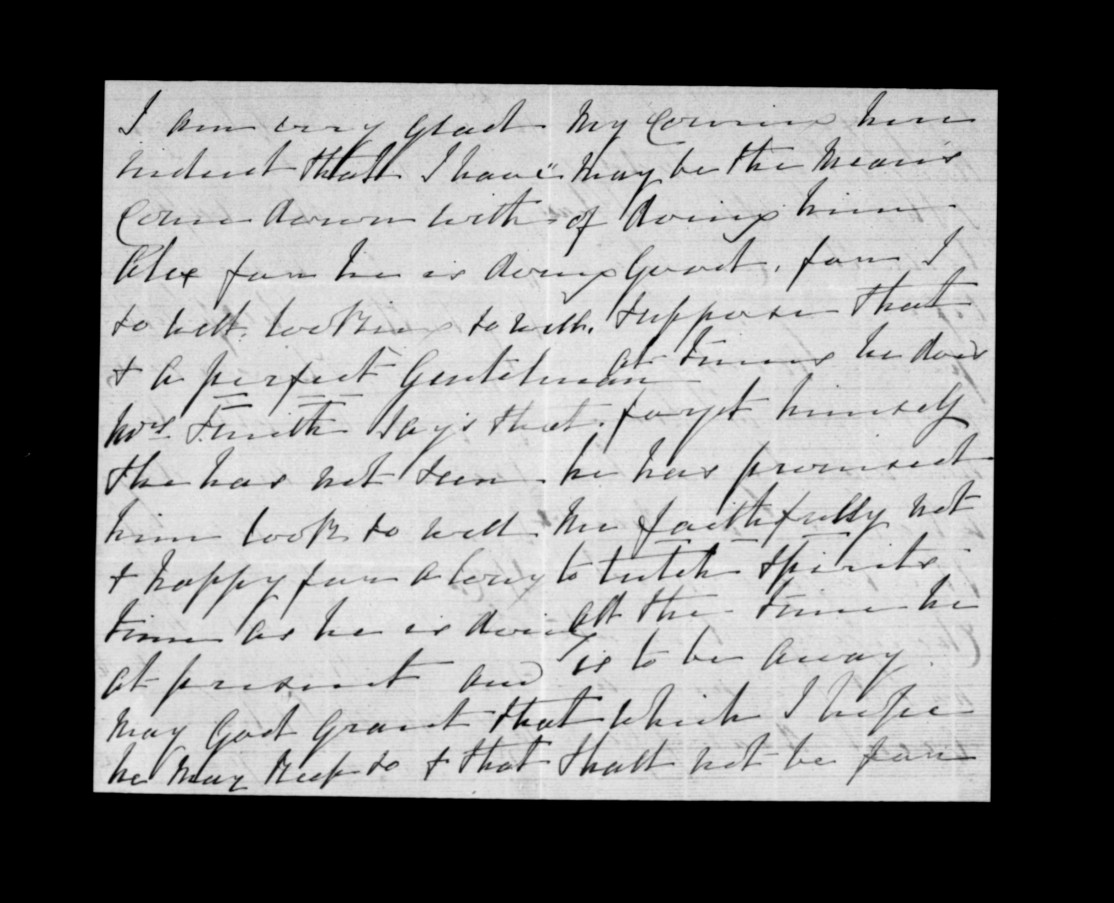 I am very glad
indeed that I have
Come down with
Alex for he is doing
so well. looking so well.
& a perfect Gentelman
Mrs Smith says that
she has not seen
him look so well
& happy for a long
time as he is doing
at present and
may God grant that
he may keep so & that
My Coming here
may be the means
of doing him
Good. for I
suppose that
at times he does
forget himself
he has promised
me faithfully not
to tutch spirits
all the time he
is to be away
which I hope
shall not be for